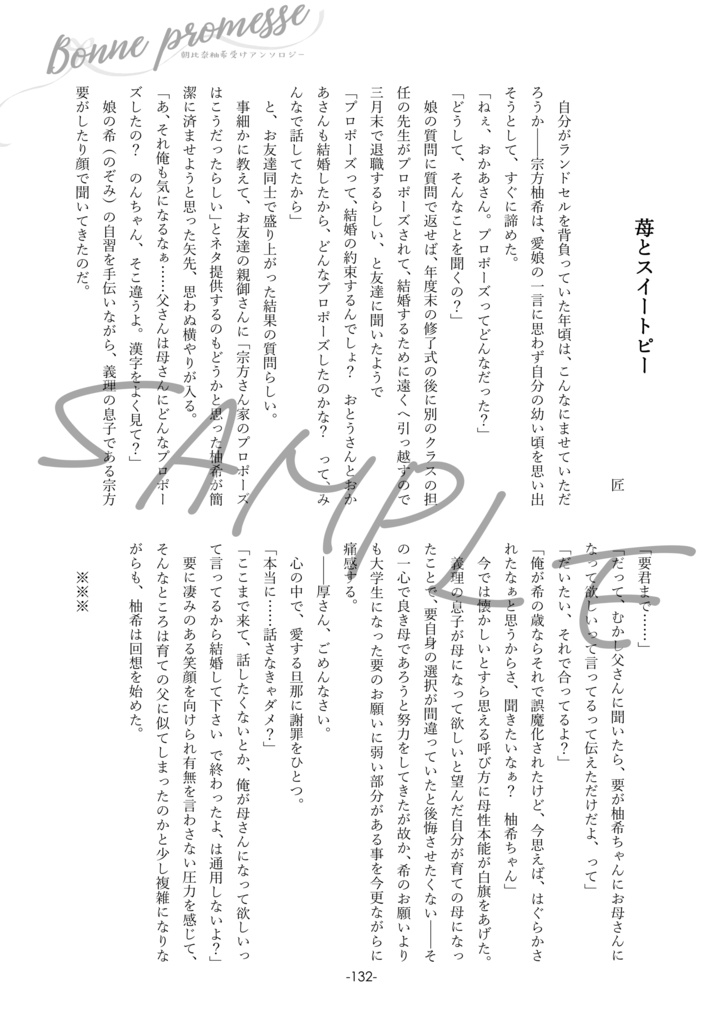 Bonne promesse
朝比奈柚希受けアンソロジー
苺とスイートピー
匠
自分がランドセルを背負っていた年頃は、こんなにませていただ
ろうか――宗方柚希は、愛娘の一言に思わず自分の幼い頃を思い出
そうとして、すぐに諦めた。
「ねぇ、おかあさん。プロポーズってどんなだった？」
「どうして、そんなことを聞くの？」
娘の質問に質問で返せば、年度末の修了式の後に別のクラスの担
任の先生がプロポーズされて、結婚するために遠くへ引っ越すので
三月末で退職するらしい、と友達に聞いたようで
「プロポーズって、結婚の約束するんでしょ？　おとうさんとおか
あさんも結婚したから、どんなプロポーズしたのかな？　って、み
んなで話してたから」
と、お友達同士で盛り上がった結果の質問らしい。
事細かに教えて、お友達の親御さんに「宗方さん家のプロポーズ
はこうだったらしい」とネタ提供するのもどうかと思った柚希が簡
潔に済ませようと思った矢先、思わぬ横やりが入る。
「あ、それ俺も気になるなぁ……父さんは母さんにどんなプロポー
ズしたの？　のんちゃん、そこ違うよ。漢字をよく見て？」
娘の希（のぞみ）の自習を手伝いながら、義理の息子である宗方
要がしたり顔で聞いてきたのだ。
「要君まで……」
「だって、むかし父さんに聞いたら、要が柚希ちゃんにお母さんに
なって欲しいって言ってるって伝えただけだよ、って」
「だいたい、それで合ってるよ？」
「俺が希の歳ならそれで誤魔化されたけど、今思えば、はぐらかさ
れたなぁと思うからさ、聞きたいなぁ？　柚希ちゃん」
今では懐かしいとすら思える呼び方に母性本能が白旗をあげた。
義理の息子が母になって欲しいと望んだ自分が育ての母になっ
たことで、要自身の選択が間違っていたと後悔させたくない――そ
の一心で良き母であろうと努力をしてきたが故か、希のお願いより
も大学生になった要のお願いに弱い部分がある事を今更ながらに
痛感する。
――厚さん、ごめんなさい。
心の中で、愛する旦那に謝罪をひとつ。
「本当に……話さなきゃダメ？」
「ここまで来て、話したくないとか、俺が母さんになって欲しいっ
て言ってるから結婚して下さい　で終わったよ、は通用しないよ？」
要に凄みのある笑顔を向けられ有無を言わさない圧力を感じて、
そんなところは育ての父に似てしまったのかと少し複雑になりな
がらも、柚希は回想を始めた。
※※※
-132-
SAMPLE